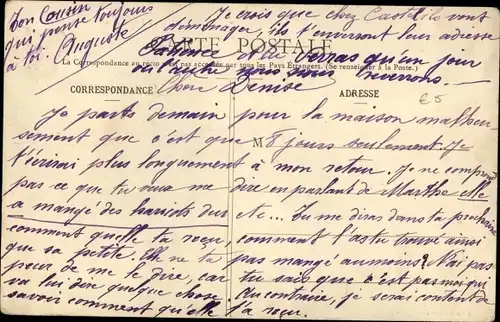 Ton Cousin
qui pense toujours
à toi. Auguste
Je crois que chez Castel ils vont
déménager, ils t'enverront leur adresse
CARTE POSTALE
Patience, tu verras qu'un jour
La Correspondance au recto n'est pas acceptée par tous les Pays Étrangers. (Se renseigner à la Poste.)
ou l'autre nous nous reverrons
chère Denise
CORRESPONDANCE
ADRESSE
€5
Je parts demain pour la maison malheu
sement que c'est que M 8 jours seulement. Je
t'écrirai plus longuement à mon retour. Je ne comprend
pas ce que tu veux me dire en parlant de Marthe elle
a mangé des haricots dur etc... Tu me diras dans ta prochaine
comment qu'elle t'a reçu, comment l'as tu trouvé ainsi
que sa petite. On ne t'a pas mangé au moins? N'ai pas
peur de me le dire, car tu sais que c'est pas moi qui
va lui dire quelque chose. Au contraire, je serai content de
savoir comment qu'elle t'a reçu.